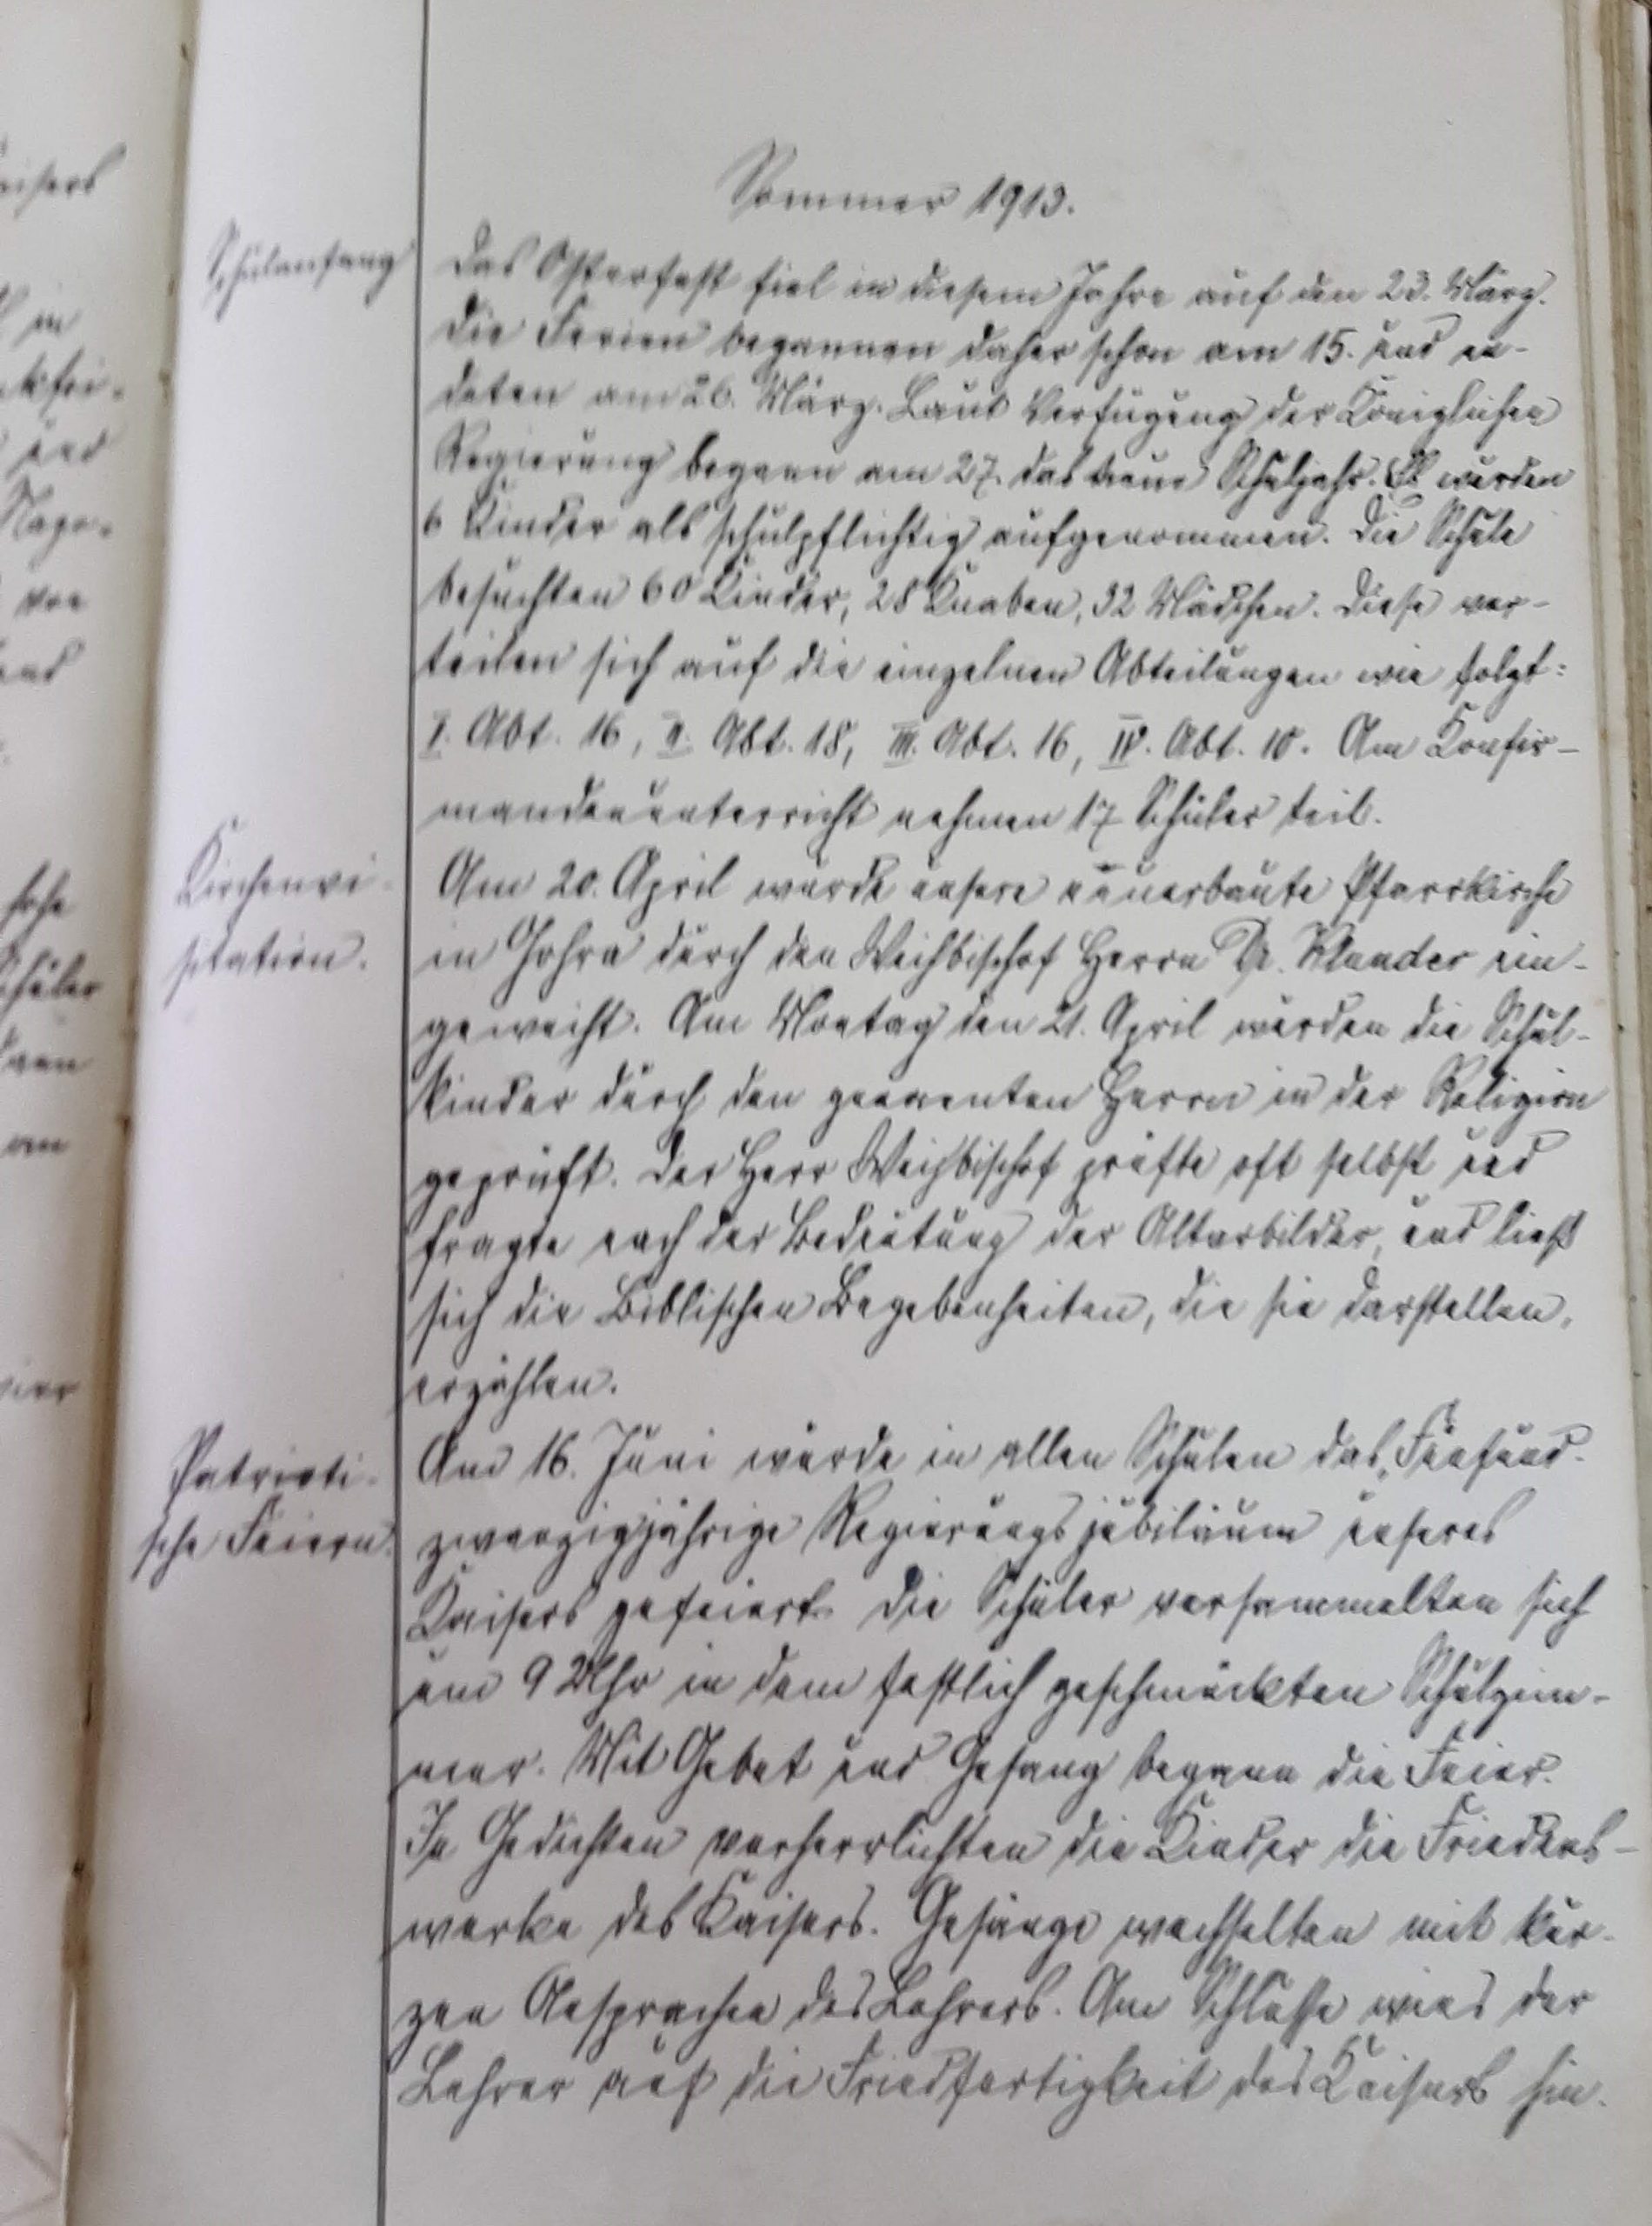 Sommer 1913.
Schulanfang
Das Osterfest fiel in diesem Jahre auf den 23. März.
Die Ferien begannen daher schon am 15. und en-
deten am 26. März. Laut Verfügung der Königlichen
Regierung begann am 27. das neue Schuljahr. Es wurden
6 Kinder als schulpflichtig aufgenommen. Die Schule
besuchten 60 Kinder, 28 Knaben, 32 Mädchen. Diese ver-
teilen sich auf die einzelnen Abteilungen wie folgt:
I. Abt. 16, II. Abt. 18, III. Abt. 16, IV. Abt. 10. Am Konfir-
mandenunterricht nehmen 17 Schüler teil.
Kirchenvi-
sitation.
Am 20. April wurde unsere neuerbaute Pfarrkirche
in Gohra durch den Weihbischof Herrn Dr. Klunder ein-
geweiht. Am Montag den 21. April wurden die Schul-
kinder durch den genannten Herrn in der Religion
geprüft. Der Herr Weihbischof prüfte oft selbst und
fragte nach der Bedeutung der Altarbilder, und ließ
sich die Biblischen Begebenheiten, die sie darstellen,
erzählen.
Patrioti-
sche Feiern.
Am 16. Juni wurde in allen Schulen das Fünfund-
zwanzigjährige Regierungsjubiläum unseres
Kaisers gefeiert. Die Schüler versammelten sich
um 9 Uhr in dem festlich geschmückten Schulzim-
mer. Mit Gebet und Gesang begann die Feier.
In Gedichten verherrlichten die Kinder die Friedens-
werke des Kaisers. Gesänge wechselten mit kur-
zen Ansprachen des Lehrers. Am Schlusse wies der
Lehrer auf die Friedfertigkeit des Kaisers hin.